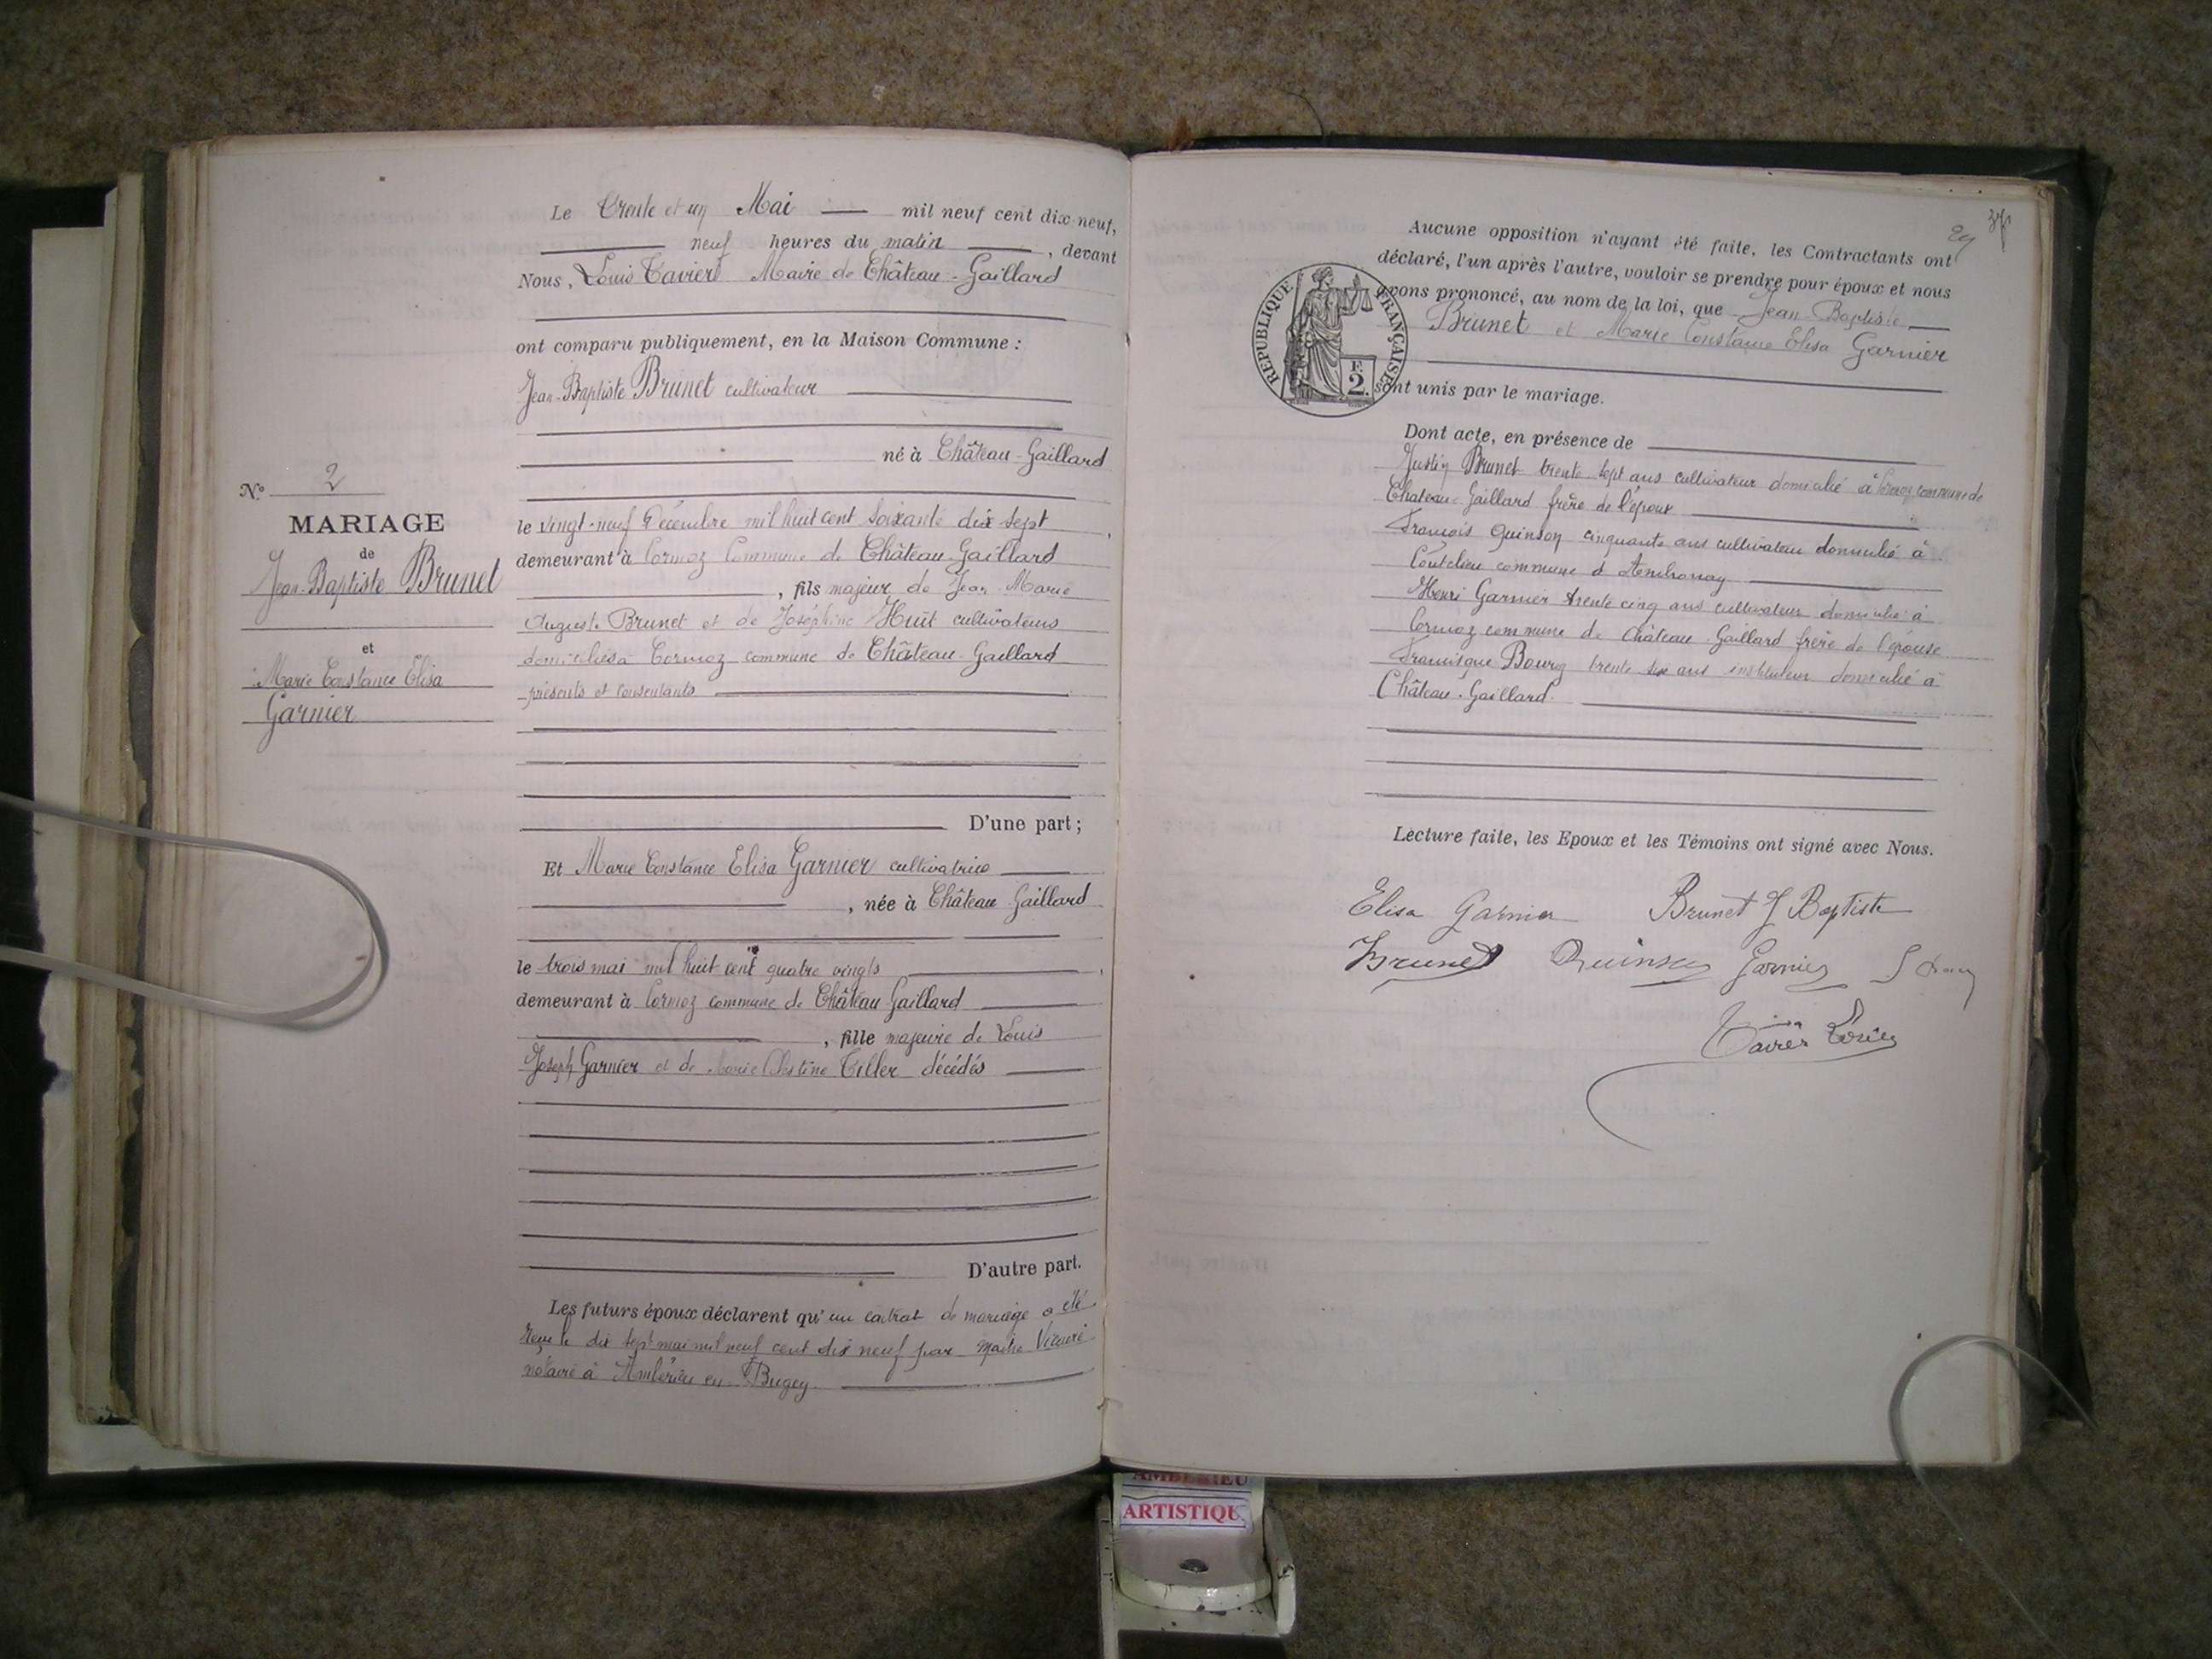 Nº 2
MARIAGE
de
Jean-Baptiste Brunet
et
Marie Constance Elisa
Garnier
Le Trente et un Mai mil neuf cent dix-neuf,
neuf heures du matin, devant
Nous, Louis Tavier Maire de Château-Gaillard
ont comparu publiquement, en la Maison Commune :
Jean-Baptiste Brunet cultivateur
né à Château-Gaillard
le vingt-neuf Décembre mil huit cent soixante dix sept,
demeurant à Cormoz Commune de Château-Gaillard
, fils majeur de Jean Marie
Auguste Brunet et de Joséphine Huit cultivateurs
domiciliés à Cormoz commune de Château-Gaillard
présents et consentants
D'une part ;
Et Marie Constance Elisa Garnier cultivatrice
, née à Château Gaillard
le trois mai mil huit cent quatre vingts,
demeurant à Cormoz commune de Château Gaillard
, fille majeure de Louis
Joseph Garnier et de Marie Tiller décédés
D'autre part.
Les futurs époux déclarent qu'un contrat de mariage a été
reçu le dix sept mai mil neuf cent dix neuf par maître
notaire à Ambérieu en-Bugey
29
Aucune opposition n'ayant été faite, les Contractants ont
déclaré, l'un après l'autre, vouloir se prendre pour époux et nous
avons prononcé, au nom de la loi, que Jean-Baptiste
Brunet et Marie Constance Elisa Garnier
sont unis par le mariage.
REPUBLIQUE FRANÇAISE
F.
2.
Dont acte, en présence de
Justin Brunet trente sept ans cultivateur domicilié à Cormoz commune de
Chateau-Gaillard frère de l'époux
François Quinson cinquante ans cultivateur domicilié à
commune d'Ambronay
Henri Garnier trente cinq ans cultivateur domicilié à
Cormoz commune de Château-Gaillard frère de l'épouse
Francisque Bourg trente six ans instituteur domicilié à
Château-Gaillard
Lecture faite, les Epoux et les Témoins ont signé avec Nous.
Elisa Garnier Brunet J Baptiste
Brunet Quinson Garnier
Tavier Louis
AMBERIEU
ARTISTIQU